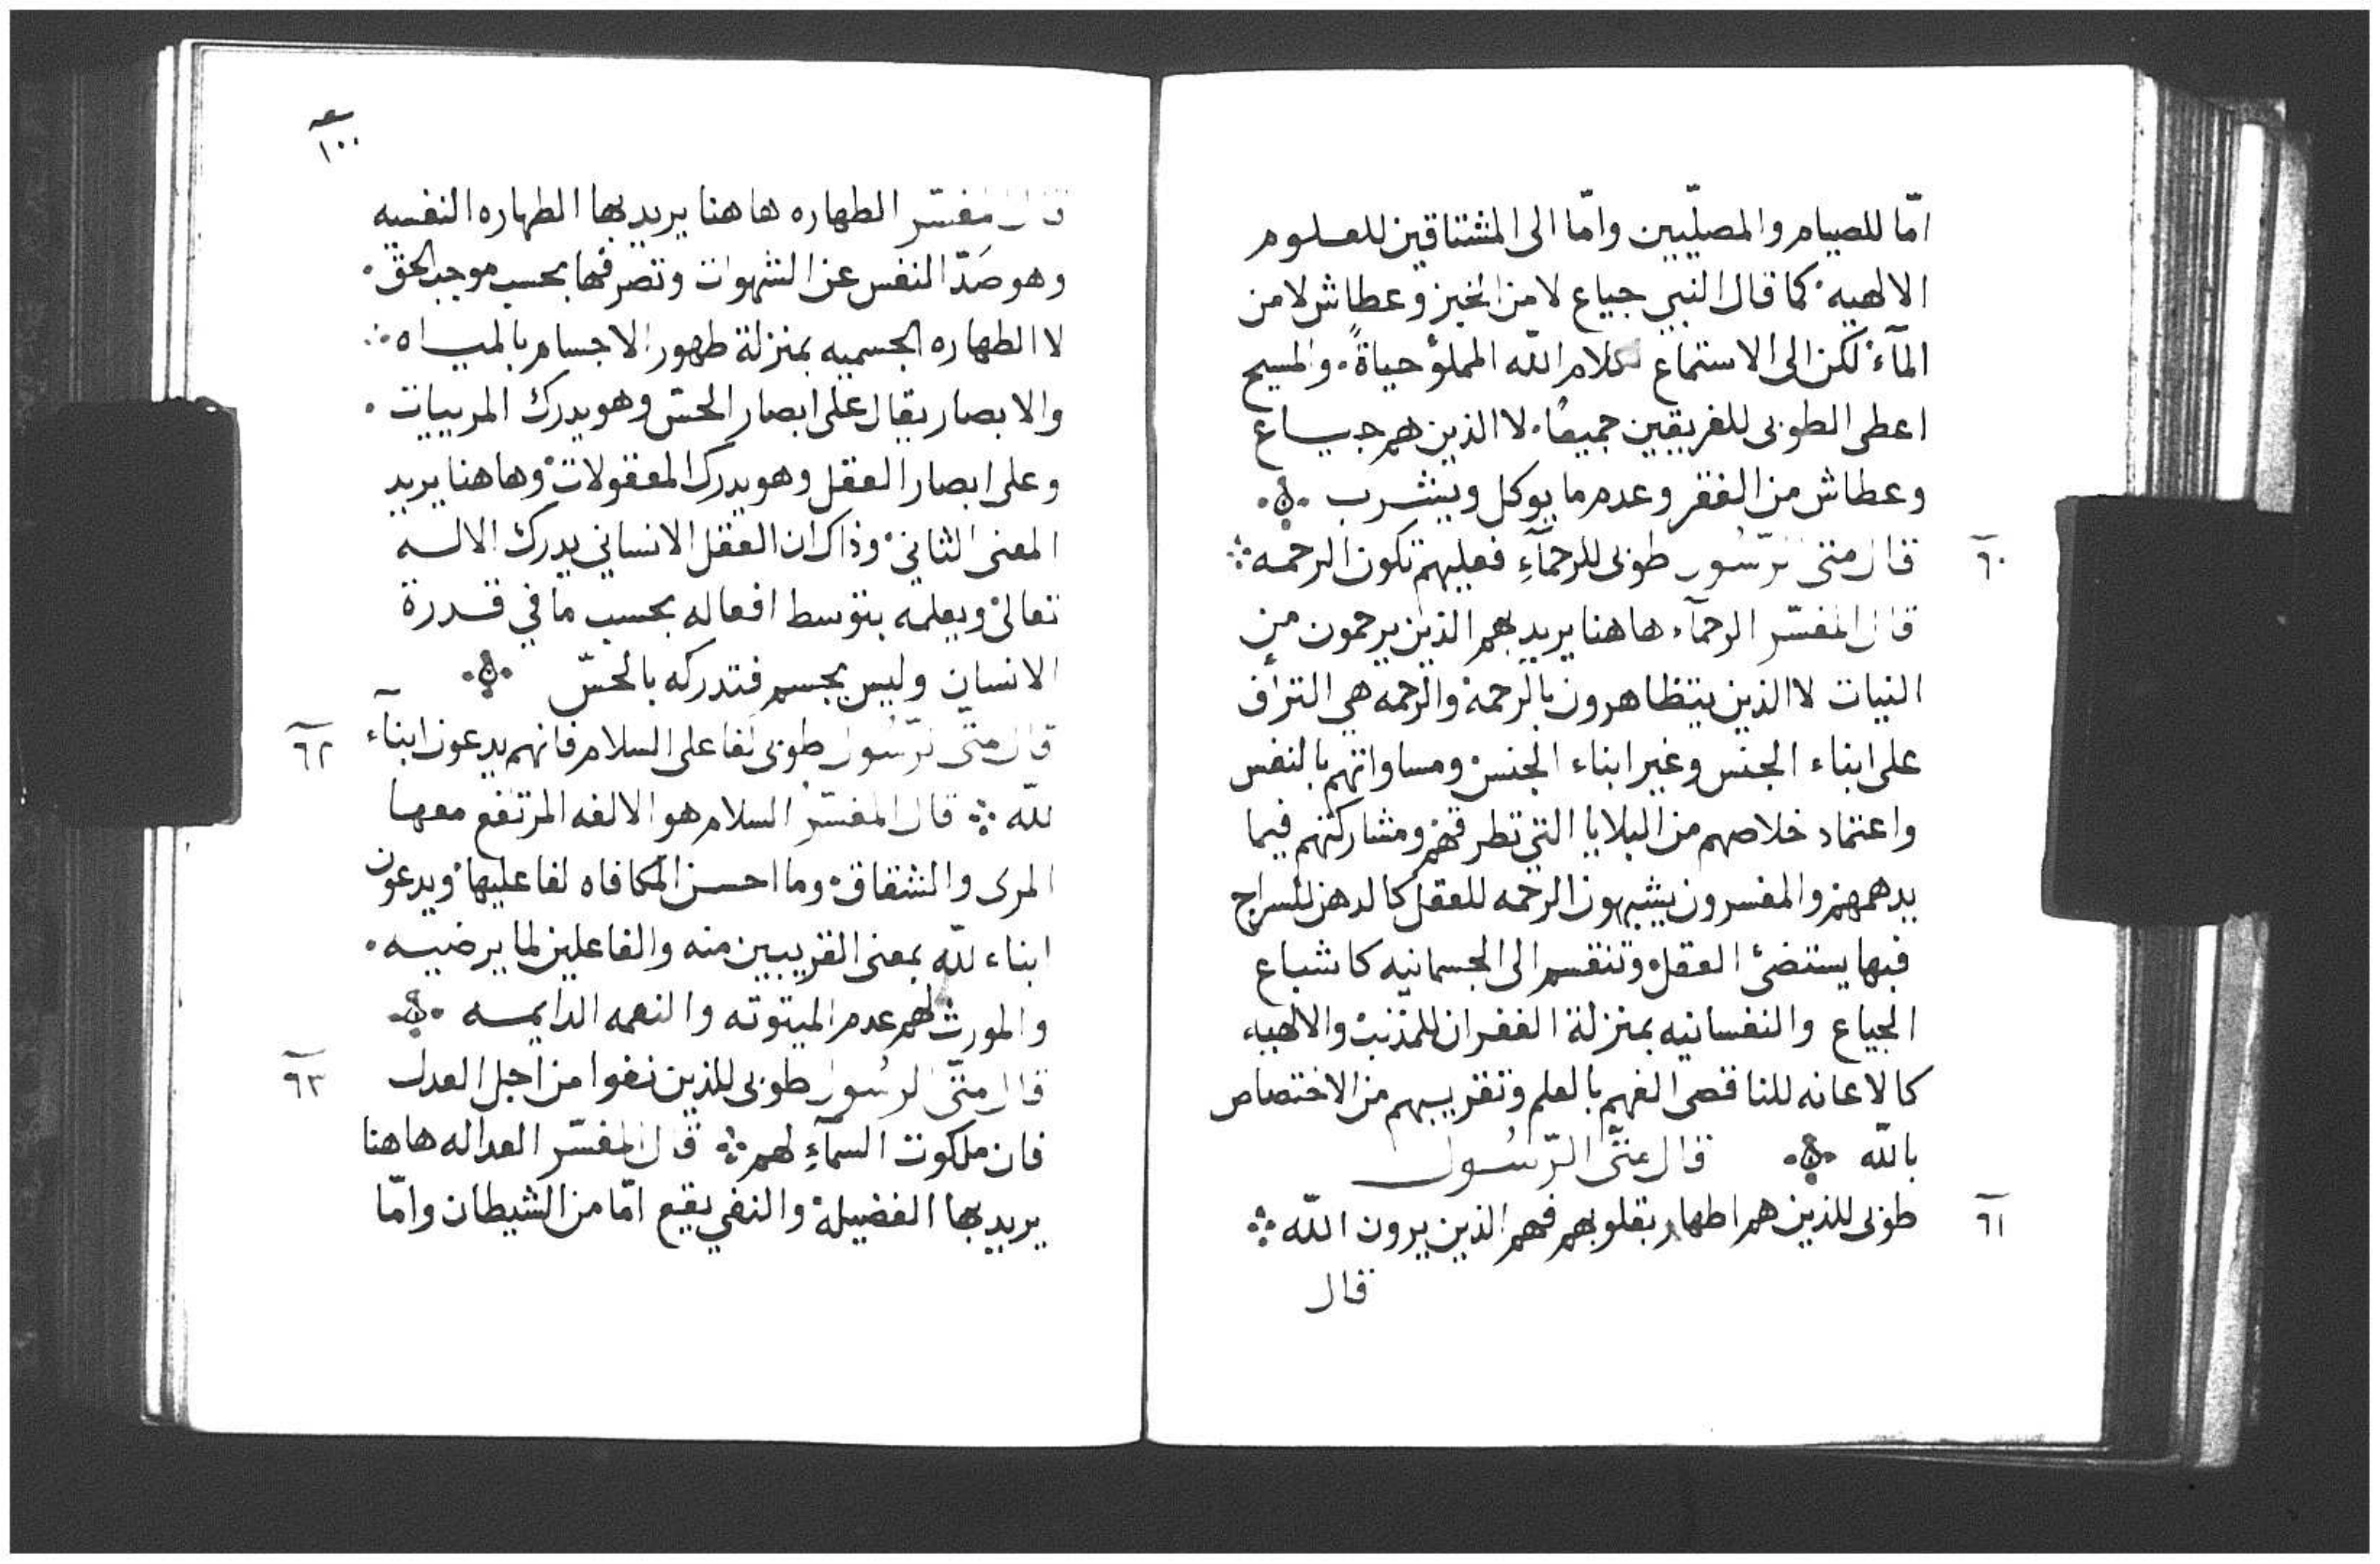 امّا للصيام والمصلّيين وامّا الى المشتاقين للعلوم
الالهيه كما قال النبي جياع لا من الخبز وعطاش لا من
المآء لكن الى الاستماع لكلام الله المملؤ حياةً والمسيح
اعطى الطوبى للفريقين جميعًا لا الذين هم جياع
وعطاش من الفقر وعدم ما يوكل ويشرب
٦٠
قال متى الرّسُول طوبى للرحمآءِ فعليهم تكون الرحمه
قال المفسّر الرحمآء هاهنا يريد بهم الذين يرحمون من
النيات لا الذين يتظاهرون بالرحمة والرحمه هي التراف
على ابناء الجنس وغير ابناء الجنس ومساواتهم بالنفس
واعتماد خلاصهم من البلايا التي تطرقهم ومشاركتهم فيما
يدهمهم والمفسرون يشبهون الرحمه للعقل كالدهن للسراج
فبها يستضئ العقل وتنقسم الى الجسمانيه كاشباع
الجياع والنفسانيه بمنزلة الغفران للمذنب والالهيه
كالاعانه للناقصى الفهم بالعلم وتقريبهم من الاختصاص
بالله قال متّى الرّسُول
٦١
طوبى للذين هم اطهار بقلوبهم فهم الذين يرون الله
قال
١٠٠
قال المفسّر الطهاره هاهنا يريد بها الطهاره النفسيه
وهو صَدّ النفس عن الشهوات وتصرفها بحسب موجب الحق
لا الطهاره الجسميه بمنزلة طهور الاجسام بالمياه
والابصار يقال على ابصار الحسّ وهو يدرك المرييات
وعلى ابصار العقل وهو يدرك المعقولات وهاهنا يريد
المعنى الثاني وذاك ان العقل الانساني يدرك الاله
تعالى ويعلمه بتوسط افعاله بحسب ما في قدرة
الانسان وليس بجسم فتدركه بالحسّ
٦٢
قال متّى الرّسُول طوبى لفاعلى السلام فانهم يدعون ابنآء
لله قال المفسّر السلام هو الالفه المرتفع معها
المرى والشقاق وما احسن المكافاه لفاعليها ويدعون
ابناء لله بمعنى القريبين منه والفاعلين لما يرضيه
والمورث لهم عدم الميتوته والنعمه الدايمه
٦٣
قال متّى الرسُول طوبى للذين نفوا من اجل العدل
فان ملكوت السمآءِ لهم قال المفسّر العداله هاهنا
يريد بها الفضيلة والنفي يقع امّا من الشيطان وامّا